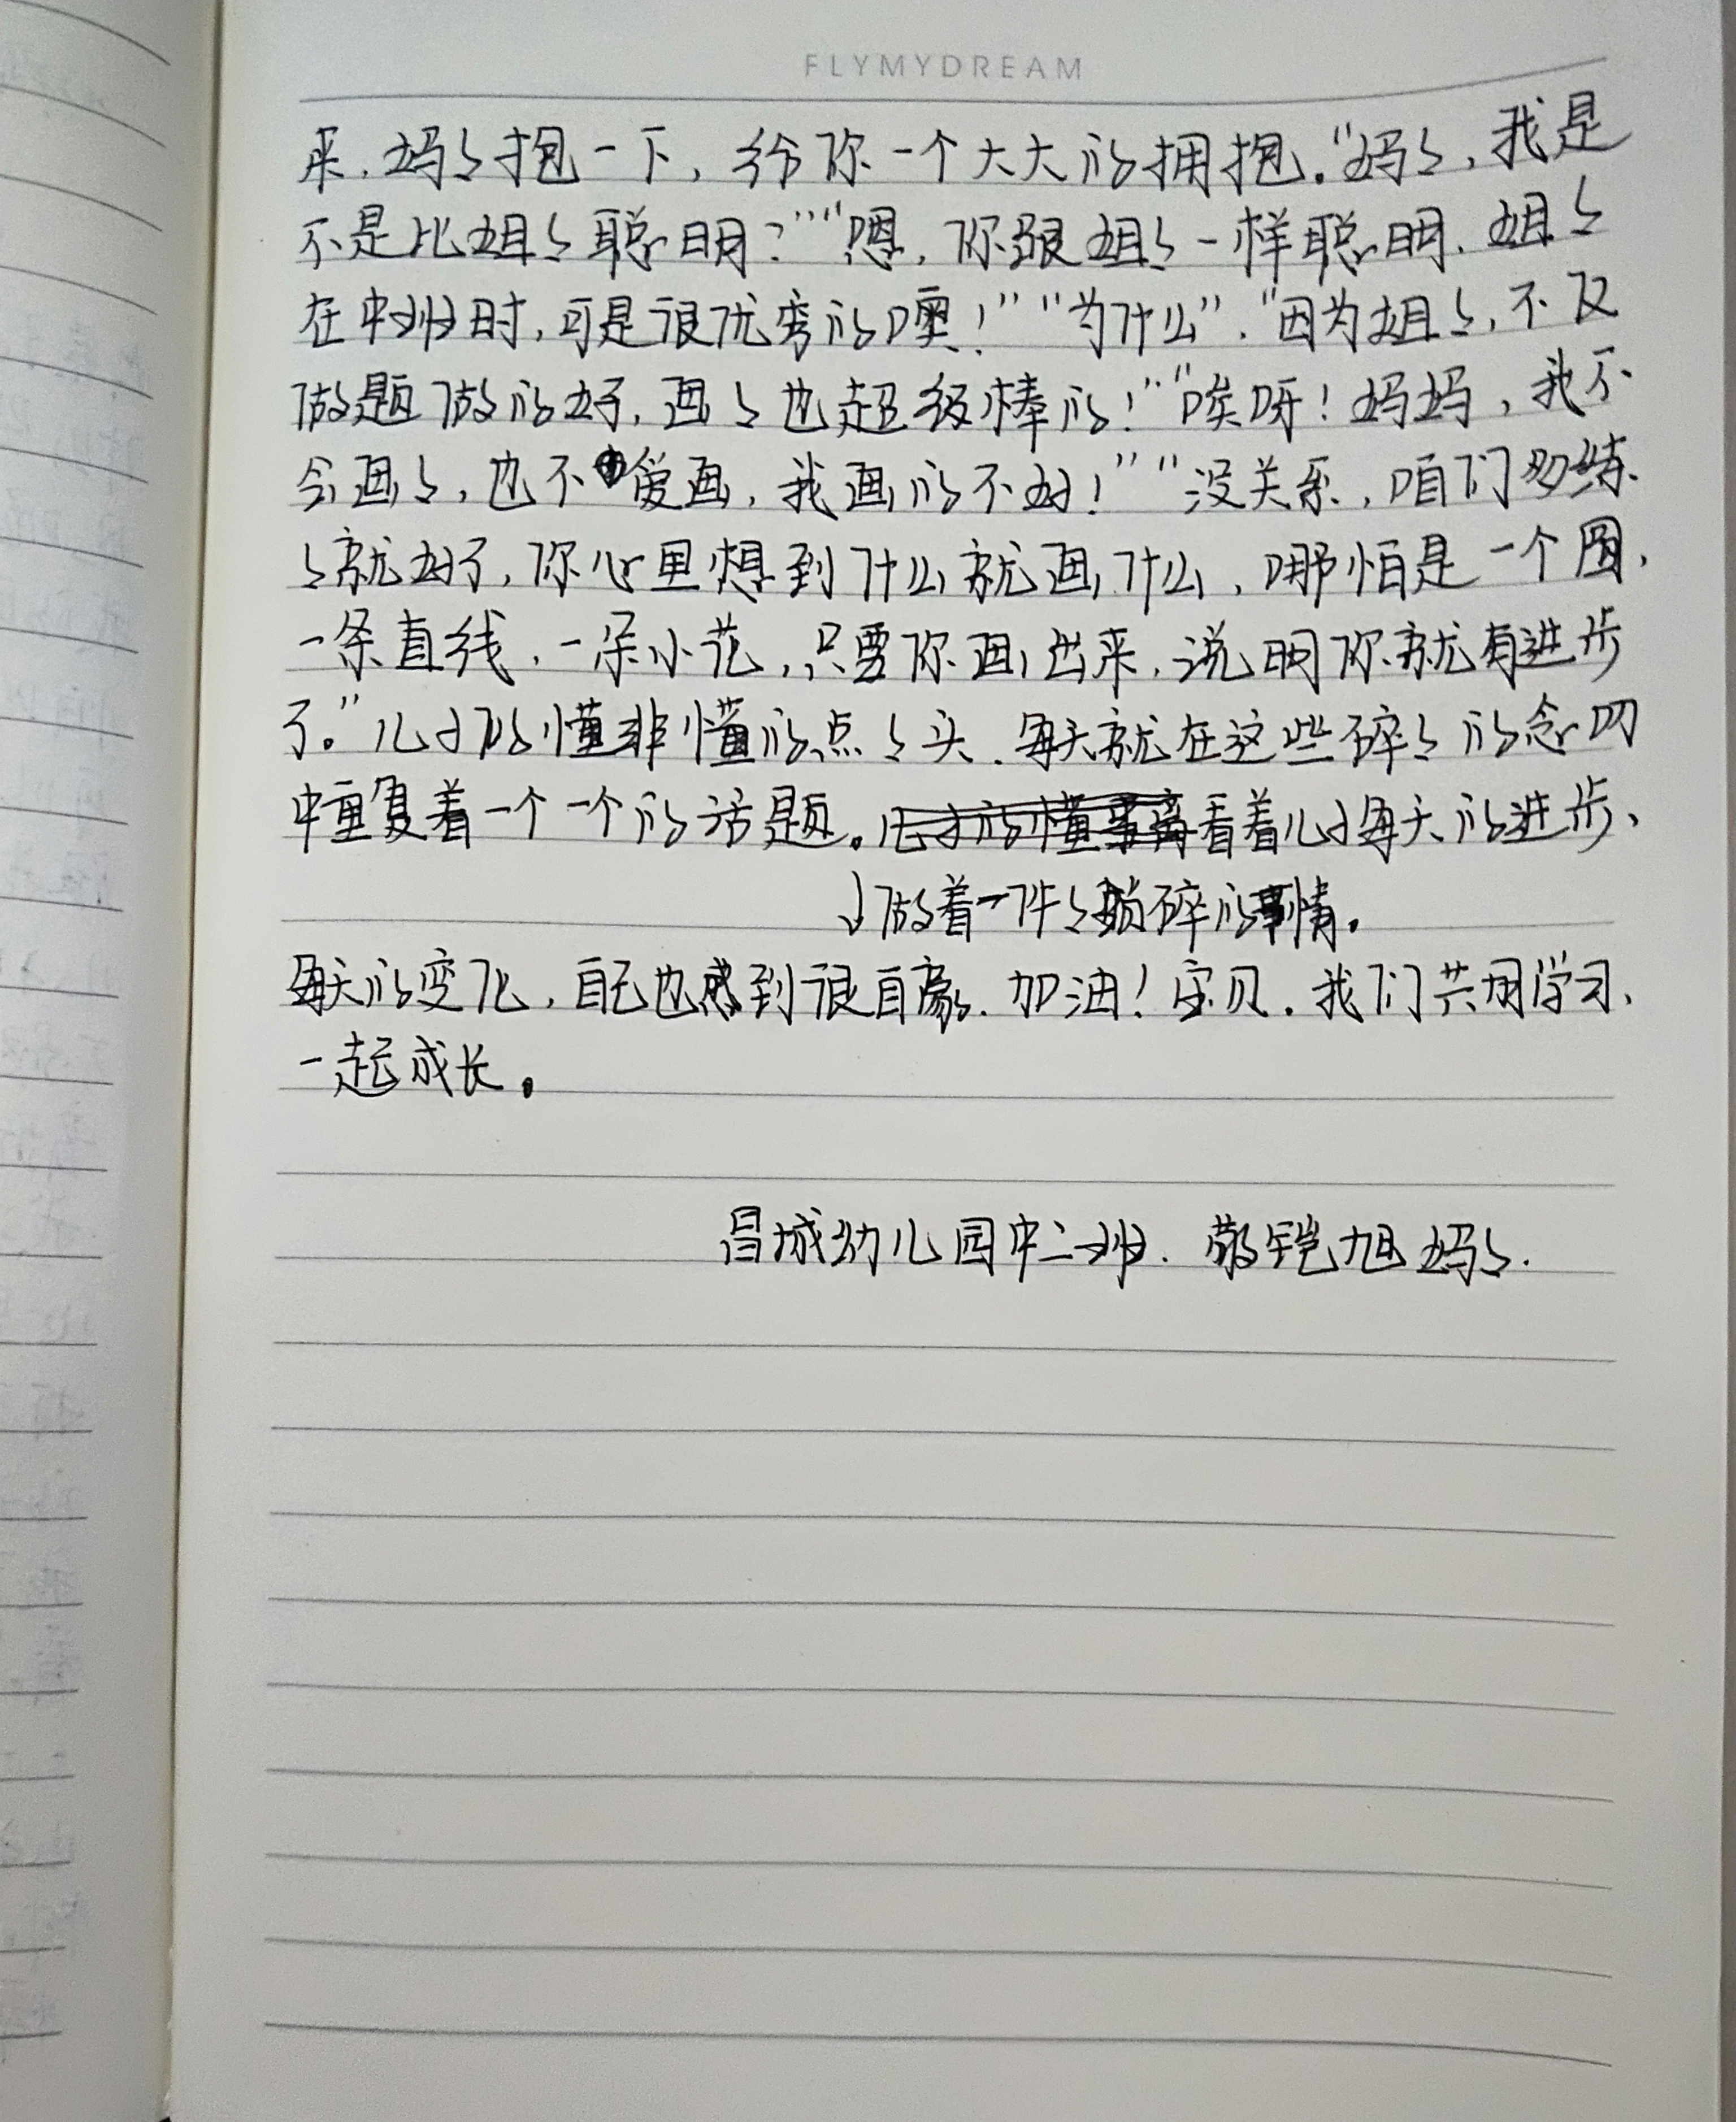 FLYMYDREAM
来.妈々抱一下,给你一个大大的拥抱。"妈々,我是
不是比姐々聪明?""嗯,你跟姐々一样聪明.姐々
在中班时,可是很优秀的噢!""为什么"."因为姐々,不仅
做题做的好,画々也超级棒的!""唉呀!妈妈,我不
会画々,也不爱画,我画的不好!""没关系,咱们多练
々就好了,你心里想到什么就画什么,哪怕是一个圆,
一条直线,一朵小花,只要你画出来,说明你就有进步
了。"儿子似懂非懂的点々头.每天就在这些碎々的念叨
中重复着一个一个的话题。看着儿子每天的进步、
做着一件々琐碎的事情。
每天的变化,自己也感到很自豪.加油!宝贝.我们共同学习、
一起成长。
昌城幼儿园中二班.敬铠旭妈々.